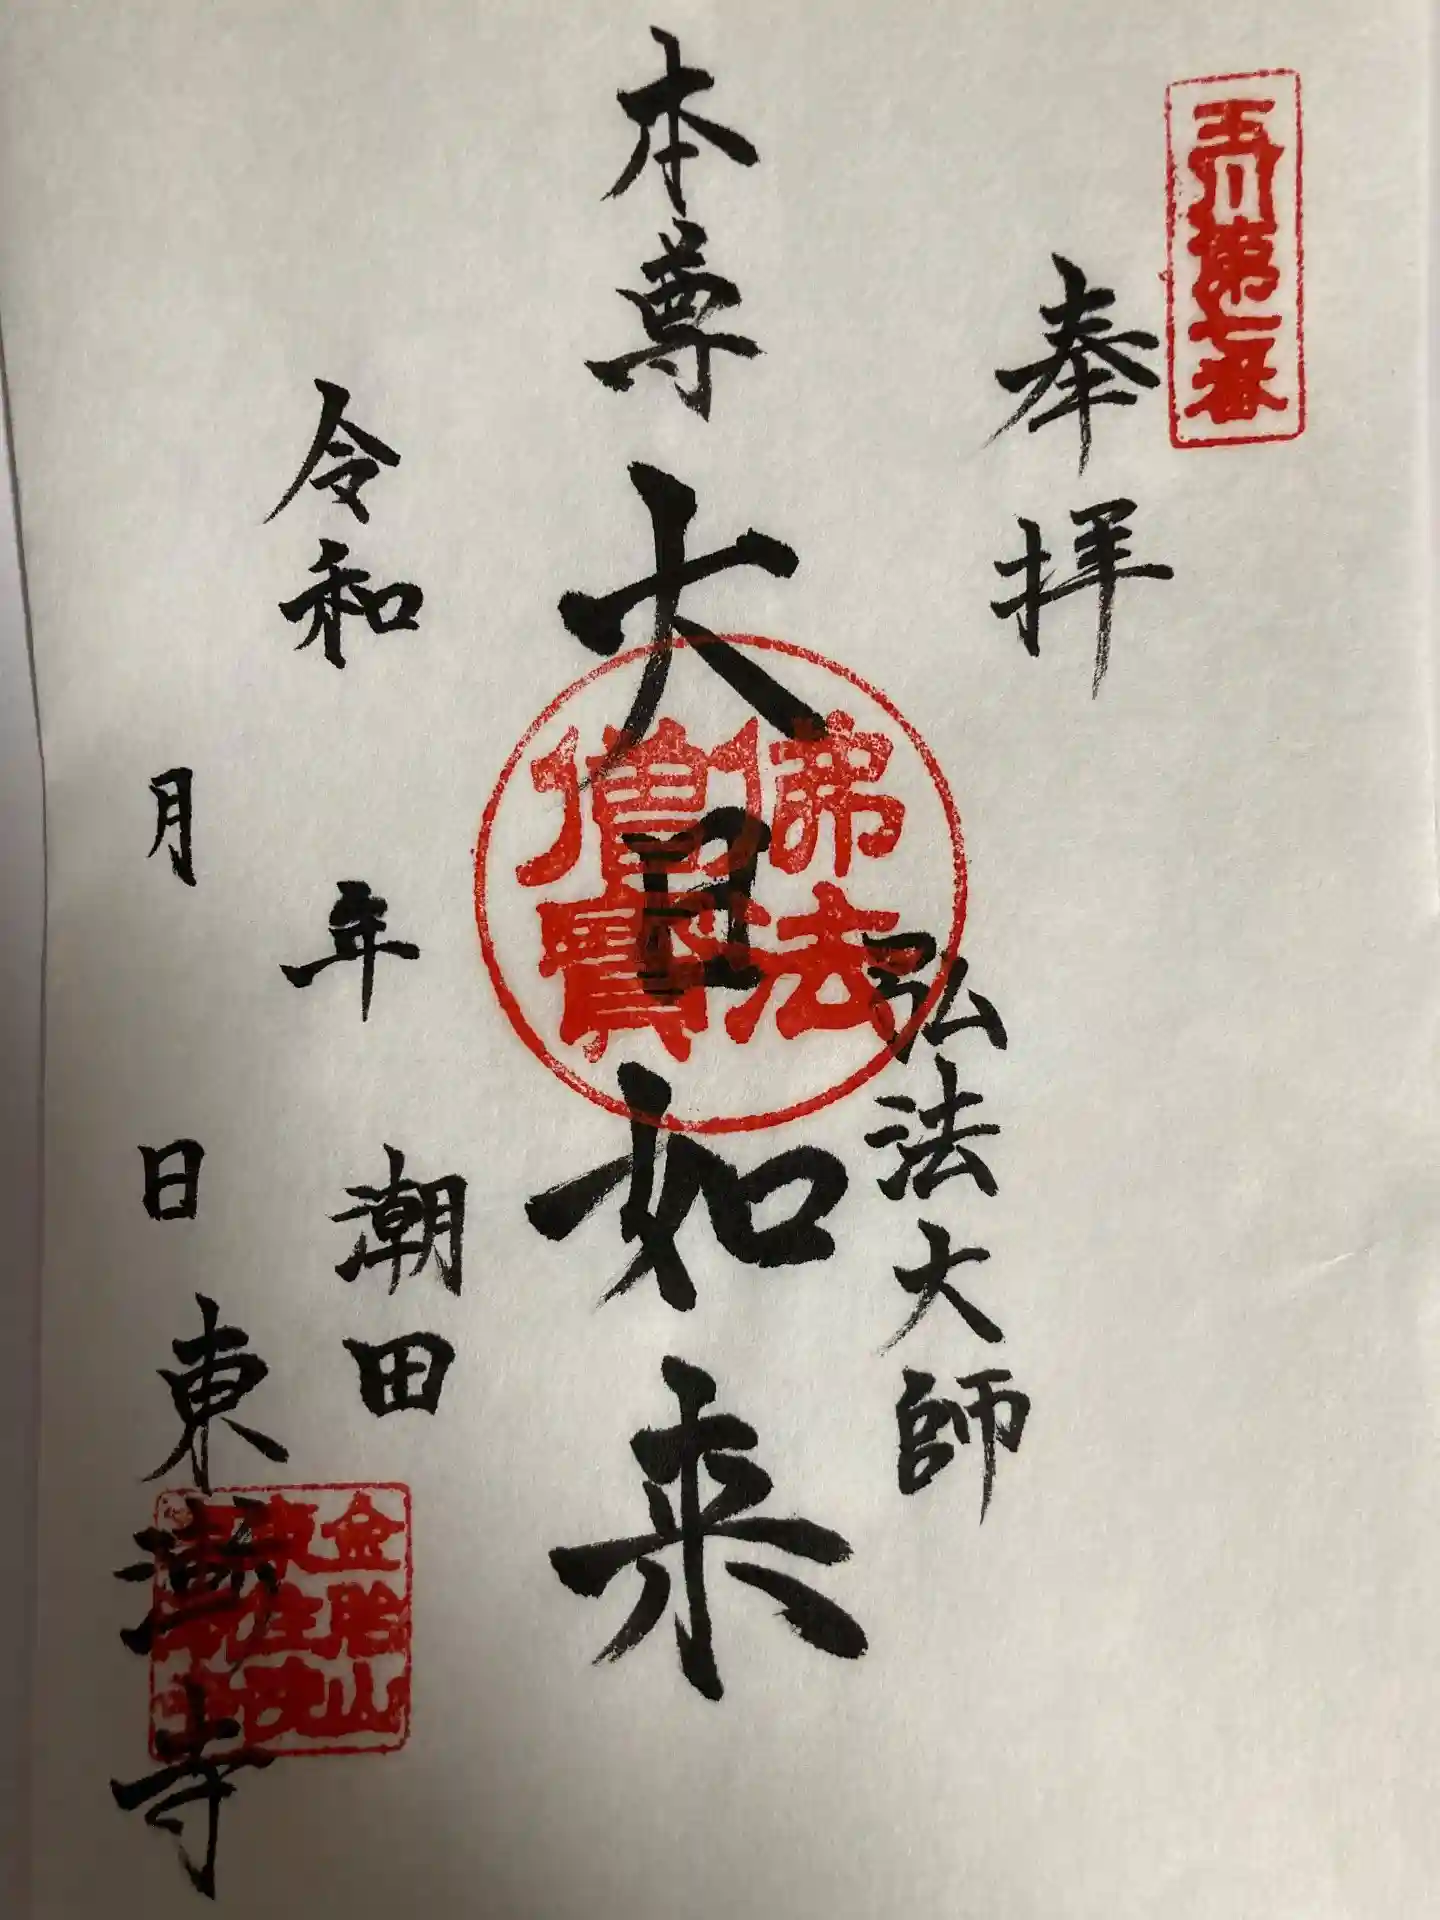 玉川第七番
奉拝
弘法大師
本尊 大日如来
佛法
僧寶
令和 年
潮田
月 日
東漸寺
金胎山